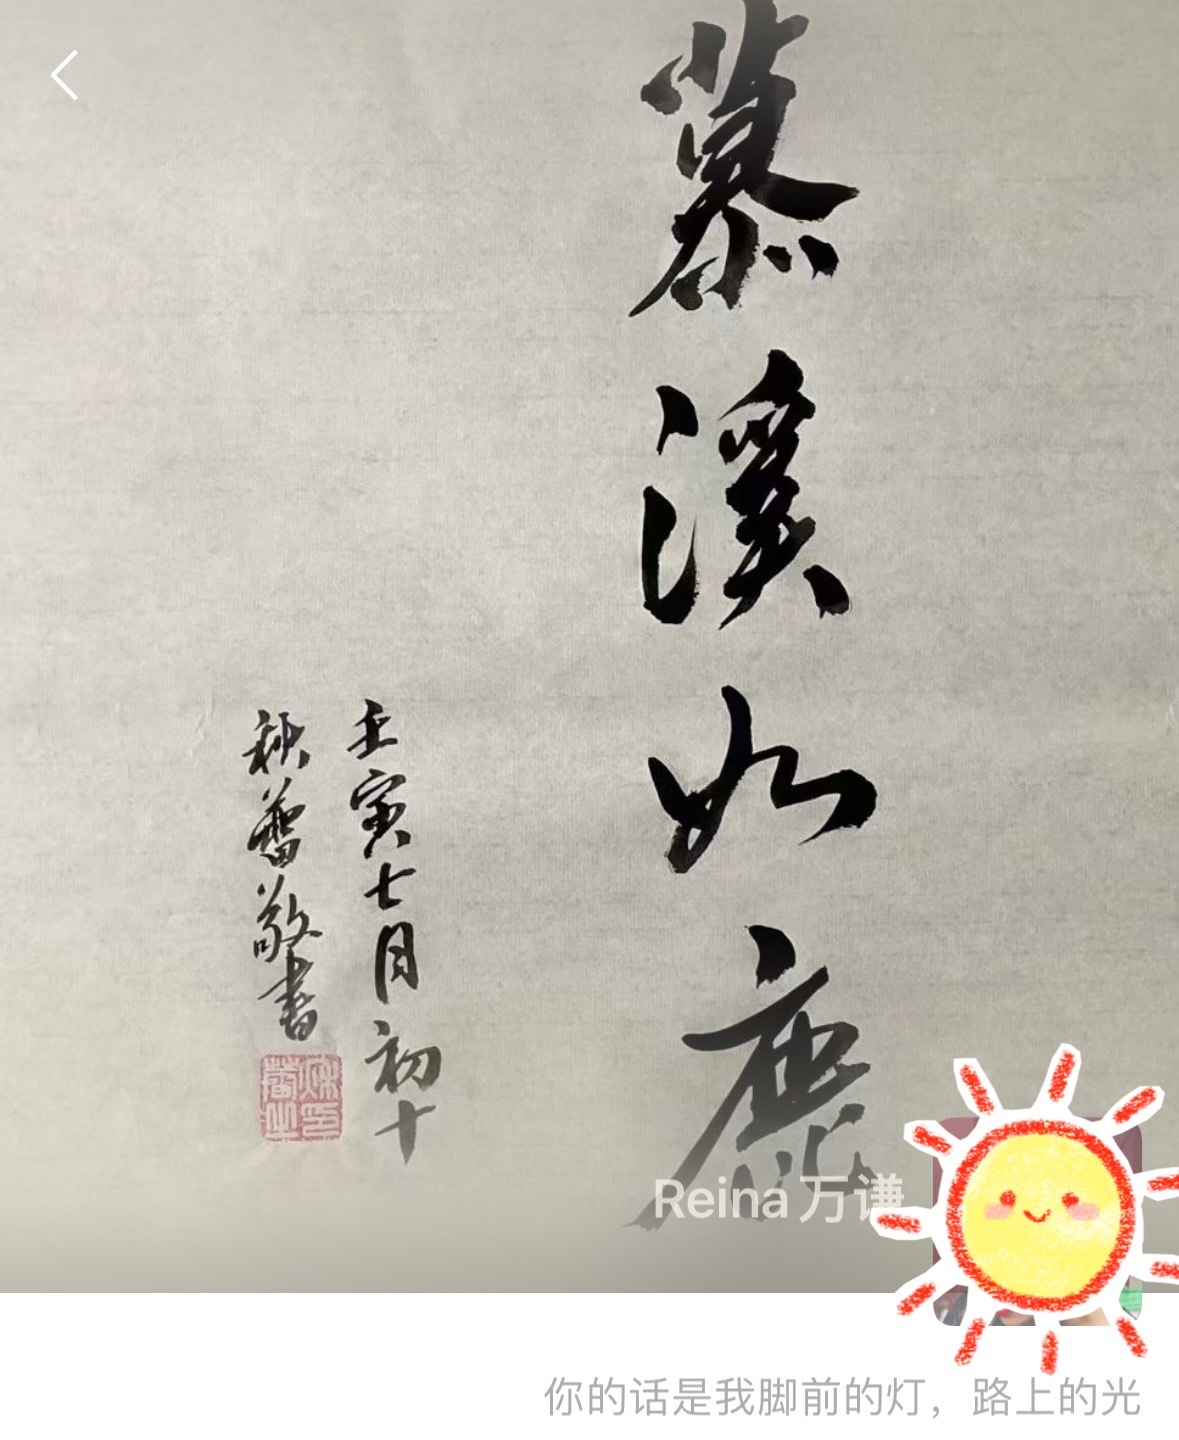 慕溪如鹿
壬寅七月初十
秋蕾敬書
Reina 万谦
你的话是我脚前的灯，路上的光